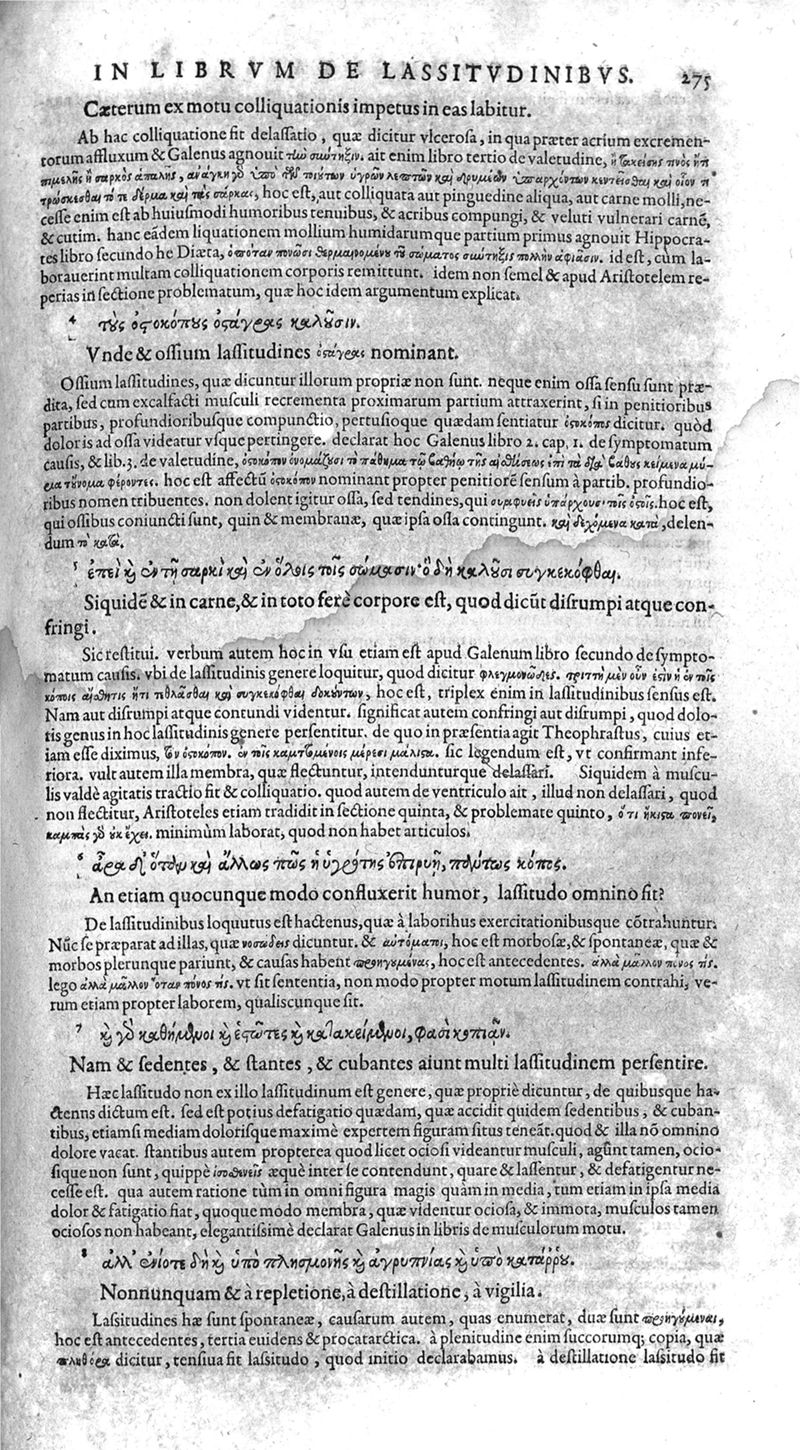 IN LIBRVM DE LASSITVDINIBVS. 275
Cæterum ex motu colliquationis impetus in eas labitur.
Ab hac colliquatione fit delassatio, quæ dicitur vlcerosa, in qua præter acrium excremen-
torum affluxum & Galenus agnouit τἰω σωύτηξιν. ait enim libro tertio de valetudine, ἢ τακείσης τινὸς ἤτοι
πιμελῆς ἢ σαρκὸς ἁπαλῆς, ἀνάγκη γὸ ὑπὸ τῶν τοιούτων ὑγρῶν λεπτῶν καὶ δριμέων ὑπαρχόντων κεντεῖσθαι καὶ οἷον τι
τρώσκεσθαι τό τε δέρμα καὶ τὰς σάρκας, hoc est, aut colliquata aut pinguedine aliqua, aut carne molli, ne-
cesse enim est ab huiusmodi humoribus tenuibus, & acribus compungi, & veluti vulnerari carnē,
& cutim. hanc eādem liquationem mollium humidarumque partium primus agnouit Hippocra-
tes libro secundo he Diæta, ὁπόταν πονῶσι θερμαινομένου τοῦ σώματος σωύτηξις πολλὴν ἀφιᾶσιν. id est, cùm la-
borauerint multam colliquationem corporis remittunt. idem non semel & apud Aristotelem re-
perias in sectione problematum, quæ hoc idem argumentum explicat.
4 τοὺς ὀστοκόπους ὀστάγρας καλοῦσιν.
Vnde & ossium lassitudines ὀστάγρας nominant.
Ossium lassitudines, quæ dicuntur illorum propriæ non sunt. neque enim ossa sensu sunt præ-
dita, sed cum excalfacti musculi recrementa proximarum partium attraxerint, si in penitioribus
partibus, profundioribusque compunctio, pertusioque quædam sentiatur ὀστοκόπος dicitur. quòd
doloris ad ossa videatur vsque pertingere. declarat hoc Galenus libro 2. cap. 1. de symptomatum
causis, & lib. 3. de valetudine, ὀστοκόπον ὀνομάζουσι τὸ πάθημα τῷ βαθέῳ τῆς αἰσθήσεως ἐπὶ τὰ διὰ βάθους κείμενα μό-
ρια τοὔνομα φέροντες. hoc est affectū ὀστοκόπον nominant propter penitiorē sensum à partib. profundio-
ribus nomen tribuentes. non dolent igitur ossa, sed tendines, qui συμφυεῖς ὑπάρχουσι τοῖς ὀστοῖς. hoc est,
qui ossibus coniuncti sunt, quin & membranæ, quæ ipsa ossa contingunt. καὶ δεχόμενα κατὰ, delen-
dum τὸ κατὰ.
5 ἐπεὶ κὶ ἐν τῇ σαρκὶ καὶ ἐν ὅλοις τοῖς σώμασιν· ὃ δὴ καλοῦσι συγκεκόφθαι.
Siquidē & in carne, & in toto ferè corpore est, quod dicūt disrumpi atque con-
fringi.
Sic restitui. verbum autem hoc in vsu etiam est apud Galenum libro secundo de sympto-
matum causis. vbi de lassitudinis genere loquitur, quod dicitur φλεγμονῶδες. τριττὴ μὲν οὖν ἐστὶν ἡ ἐν τοῖς
κόποις αἴσθησις ἤτοι τεθλᾶσθαι καὶ συγκεκόφθαι δοκούντων, hoc est, triplex enim in lassitudinibus sensus est.
Nam aut disrumpi atque contundi videntur. significat autem confringi aut disrumpi, quod dolo-
ris genus in hoc lassitudinis genere persentitur. de quo in præsentia agit Theophrastus, cuius et-
iam esse diximus, τὸν ὀστοκόπον. ἐν τοῖς καμπτομένοις μέρεσι μάλιστα. sic legendum est, vt confirmant infe-
riora. vult autem illa membra, quæ flectuntur, intendunturque delassari. Siquidem à muscu-
lis valdè agitatis tractio fit & colliquatio. quod autem de ventriculo ait, illud non delassari, quod
non flectitur, Aristoteles etiam tradidit in sectione quinta, & problemate quinto, ὅτι ἥκιστα πονεῖ,
καμπὰς γὸ οὐκ ἔχει. minimùm laborat, quod non habet articulos.
6 ἆρα δ' ὅταν καὶ ἄλλως πῶς ἡ ὑγρότης ἐπιρυῇ, πάντως κόπος.
An etiam quocunque modo confluxerit humor, lassitudo omnino fit?
De lassitudinibus loquutus est hactenus, quæ à laborihus exercitationibusque cōtrahuntur.
Nūc se præparat ad illas, quæ νοσώδεις dicuntur. & αὐτόματοι, hoc est morbosæ, & spontaneæ, quæ &
morbos plerunque pariunt, & causas habent προηγουμένας, hoc est antecedentes. ἀλλὰ μᾶλλον πόνος τῆς.
lego ἀλλὰ μᾶλλον ὅταν πόνος τῆς. vt sit sententia, non modo propter motum lassitudinem contrahi, ve-
rum etiam propter laborem, qualiscunque sit.
7 κὶ γὸ καθήμενοι κὶ ἑστῶτες κὶ κατακείμενοι, φασὶ κοπιᾷν.
Nam & sedentes, & stantes, & cubantes aiunt multi lassitudinem persentire.
Hæc lassitudo non ex illo lassitudinum est genere, quæ propriè dicuntur, de quibusque ha-
ctenns dictum est. sed est potius defatigatio quædam, quæ accidit quidem sedentibus, & cuban-
tibus, etiamsi mediam dolorisque maximè expertem figuram situs teneāt. quod & illa nō omnino
dolore vacat. stantibus autem propterea quod licet ociosi videantur musculi, agūnt tamen, ocio-
sique non sunt, quippè ἰσοσθενεῖς æquè inter se contendunt, quare & lassentur, & defatigentur ne-
cesse est. qua autem ratione tùm in omni figura magis quàm in media, tum etiam in ipsa media
dolor & fatigatio fiat, quoque modo membra, quæ videntur ociosa, & immota, musculos tamen
ociosos non habeant, elegantissimè declarat Galenus in libris de musculorum motu.
8 ἀλλ' ἐνίοτε δὴ κὶ ὑπὸ πλησμονῆς κὶ ἀγρυπνίας κὶ ὑπὸ κατάρρου.
Nonnunquam & à repletione, à destillatione, à vigilia.
Lassitudines hæ sunt spontaneæ, causarum autem, quas enumerat, duæ sunt προηγούμεναι,
hoc est antecedentes, tertia euidens & procatarctica. à plenitudine enim succorumq; copia, quæ
πληθώρα dicitur, tensiua fit lassitudo, quod initio declarabamus. à destillatione lassitudo fit